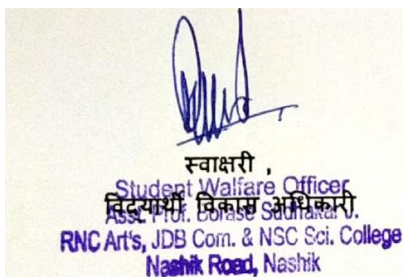 स्वाक्षरी ,
Student Walfare Officer
विद्यार्थी विकास अधिकारी
Asst. Prof. Borase Sudhakar J.
RNC Art's, JDB Com. & NSC Sci. College
Nashik Road, Nashik